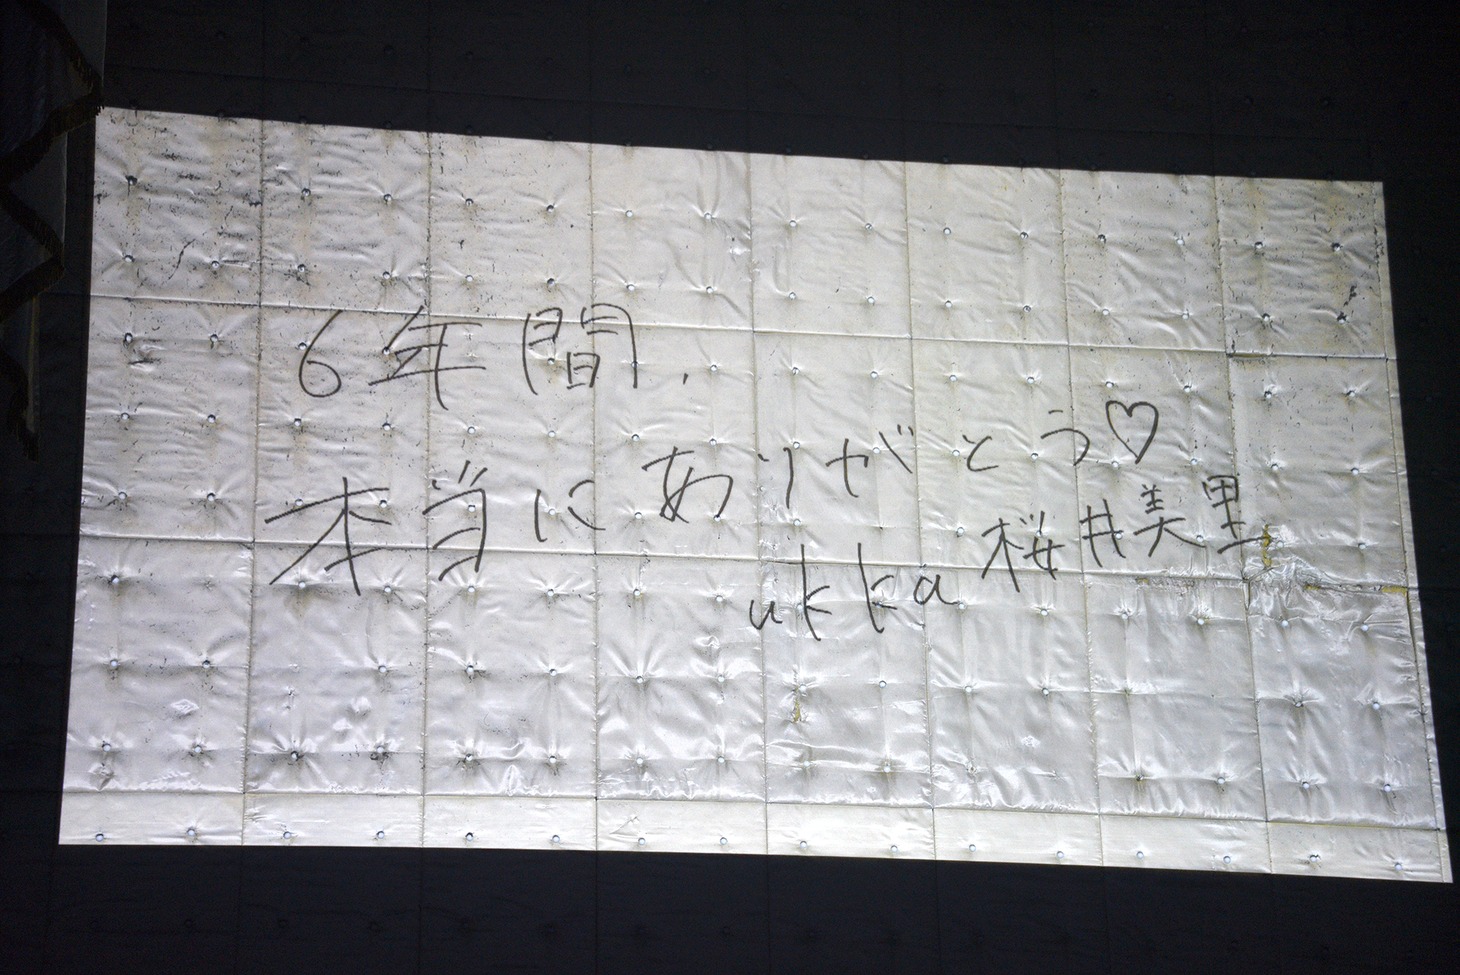 6年間、
本当にありがとう♡
ukka 桜井美里